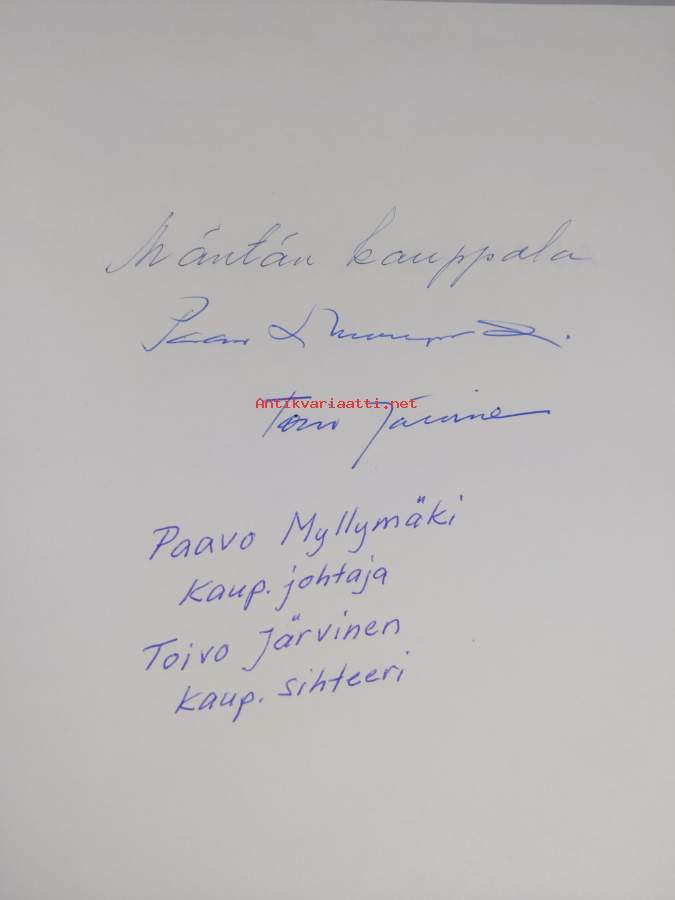 Mäntän kauppala
Paavo
Antikvariaatti.net
Toivo Järvinen
Paavo Myllymäki
kaup. johtaja
Toivo Järvinen
kaup. sihteeri